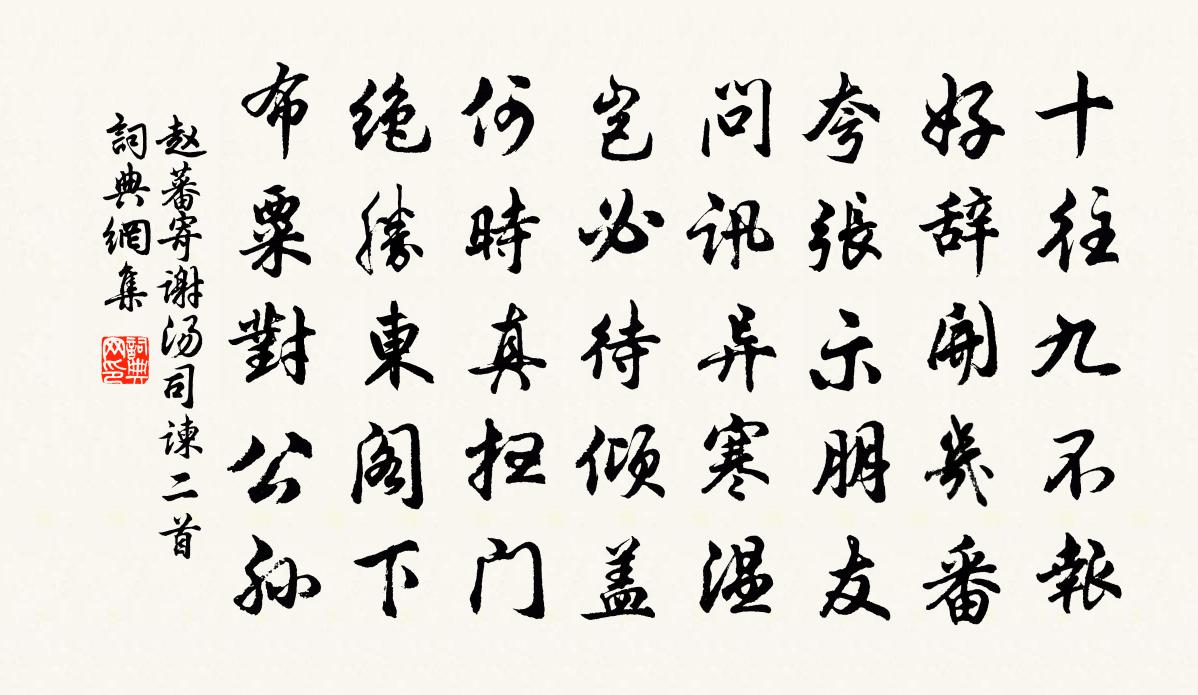 十往九不報
好辞開幾番
夸張示朋友
問訊异寒温
豈必待倾盖
何時真扫门
绝勝東阁下
布粟對公孙
赵蕃寄谢汤司谏二首
詞典網集
詞典网印